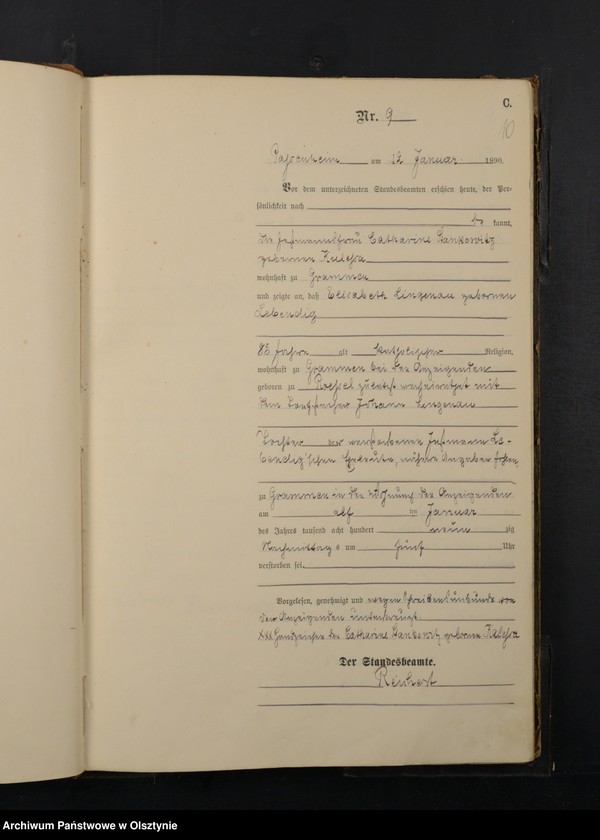 C.
Nr. 9
10
Passenheim am 12 Januar 1890.
Vor dem unterzeichneten Standesbeamten erschien heute, der Per-
sönlichkeit nach
be kannt,
die Instmannsfrau Catharine Jankowitz
geborene Kulessa
wohnhaft zu Grammen
und zeigte an, daß Elisabeth Lingenau geborenen
Lebendig
83 Jahre alt katholischer Religion,
wohnhaft zu Grammen bei der Anzeigenden
geboren zu Roessel zuletzt verheirathet mit
dem Johann Lingenau
Tochter der verstorbenen Instmann Le-
bendig'schen Eheleute, nähere Angaben fehlen,
zu Grammen in der Wohnung der Anzeigenden
am elf ten Januar
des Jahres tausend acht hundert neun zig
Nachmittag s um fünf Uhr
verstorben sei.
Vorgelesen, genehmigt und wegen Schreibensunkunde von
der Anzeigenden unterkreuzt.
XXX Handzeichen der Catharine Jankowitz geborene Kulessa
Der Standesbeamte.
Reichert
Archiwum Państwowe w Olsztynie